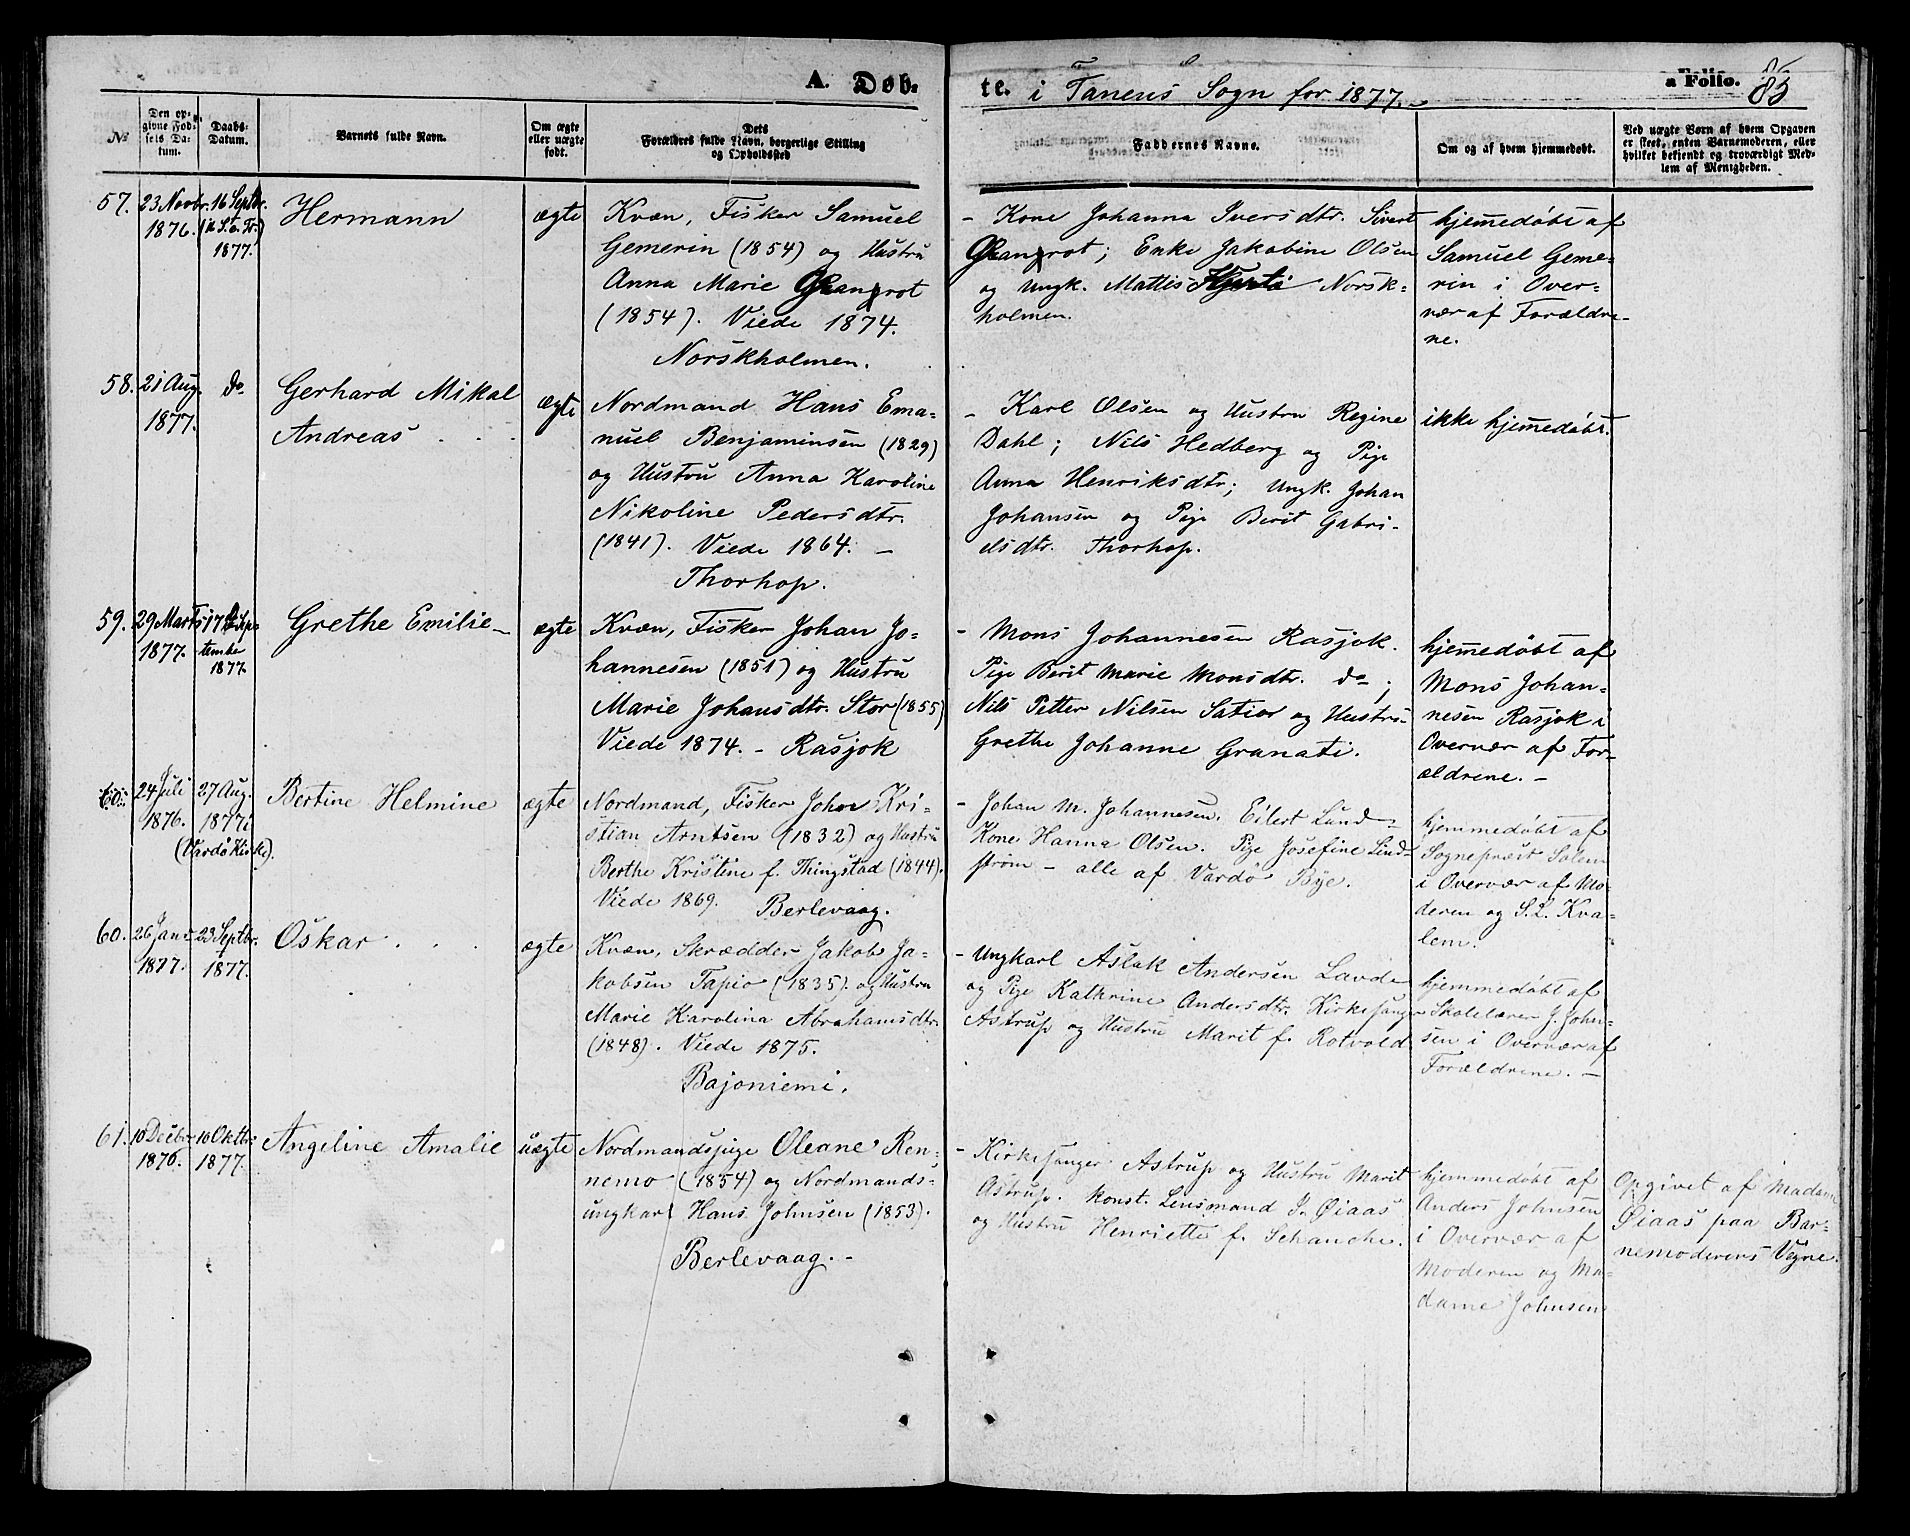 A. Døb-
te. i Tanens Sogn for 1877.
a Folio. 85
№
Den op-
givne Fød-
sels Da-
tum.
Daabs-
Datum.
Barnets fulde Navn.
Om ægte
eller uægte
født.
Dets
Forældres fulde Navn, borgerlige Stilling
og Opholdssted
Faddernes Navne.
Om og af hvem hjemmedøbt.
Ved uægte Børn af hvem Opgaven
er skeet, enten Barnemoderen, eller
hvilket bekjendt og troværdigt Med-
lem af Menigheden.
57.
23 Novbr.
1876.
16 Septbr.
(16 S. e. Tr.)
1877.
Hermann
ægte
Kvæn, Fisker Samuel
Gemerin (1854) og Hustru
Anna Marie Granrot
(1854). Viede 1874.
Norskholmen.
- Kone Johanna Iversdtr. Sivert
Granrot; Enke Jakobine Olsen
og Ungk. Mattis Norsk-
holmen.
hjemmedøbt af
Samuel Geme-
rin i Over-
vær af Forældre-
ne.
58.
21 Aug.
1877.
do
Gerhard Mikal
Andreas . . .
ægte
Nordmand Hans Ema-
nuel Benjaminsen (1829)
og Hustru Anna Karoline
Nikoline Pedersdtr.
(1841). Viede 1864. -
Thorhop.
- Karl Olsen og Hustru Regine
Dahl; Nils Hedberg og Pige
Anna Henriksdtr; Ungk. Johan
Johansen og Pige Berit Gabri-
elsdtr. Thorhop.
ikke hjemmedøbt.
59.
29 Marts
1877.
17 Sep-
tember
1877.
Grethe Emilie -
ægte
Kvæn, Fisker Johan Jo-
hannesen (1851) og Hustru
Marie Johansdtr. Stor (1855)
Viede 1874. - Rasjok
- Mons Johannesen Rasjok.
Pige Berit Marie Monsdtr. do;
Nils Petter Nilsen Satior og Hustru
Grethe Johanne Granati.
hjemmedøbt af
Mons Johan-
nesen Rasjok i
Overvær af For-
ældrene. -
60.
24 Juli
1876.
27 Aug.
1877
(Vardø Kirke).
Bertine Helmine
ægte
Nordmand, Fisker Johan Kri-
stian Arntsen (1832) og Hustru
Berthe Kristine f. Thingstad (1844).
Viede 1869. Berlevaag.
- Johan M. Johannesen. Eilert Lund-
Kone Hanna Olsen. Pige Josefine Lind-
strøm - alle af Vardø Bye.
hjemmedøbt af
Sognepræst Solem
i Overvær af Mo-
deren og S. L. Kva-
lem.
60.
26 Janr
1877.
23 Septbr.
1877.
Oskar . . .
ægte
Kvæn, Skrædder Jakob Ja-
kobsen Tapio (1835). og Hustru
Marie Karolina Abrahamsdtr.
(1848). Viede 1875.
Bajoniemi.
- Ungkarl Aslak Andersen Lavde
og Pige Kathrine Andersdtr. Kirkesanger
Astrup og Hustru Marit f. Rotvold
hjemmedøbt af
Skolelærer J. John-
sen i Overvær af
Forældrene. -
61.
10 Decbr
1876.
10 Oktbr
1877.
Angeline Amalie
uægte
Nordmandspige Oleane Ren-
nemo (1854) og Nordmands-
ungkarl Hans Johnsen (1853).
Berlevaag. -
- Kirkesanger Astrup og Hustru Marit
Astrup. Konst. Lensmand J. Øiaas
og Hustru Henriette f. Schanche.
hjemmedøbt af
Anders Johnsen
i Overvær af
Moderen og Ma-
dame Johnsen
Opgivet af Madam
Øiaas paa Bar-
nemoderens Vegne.